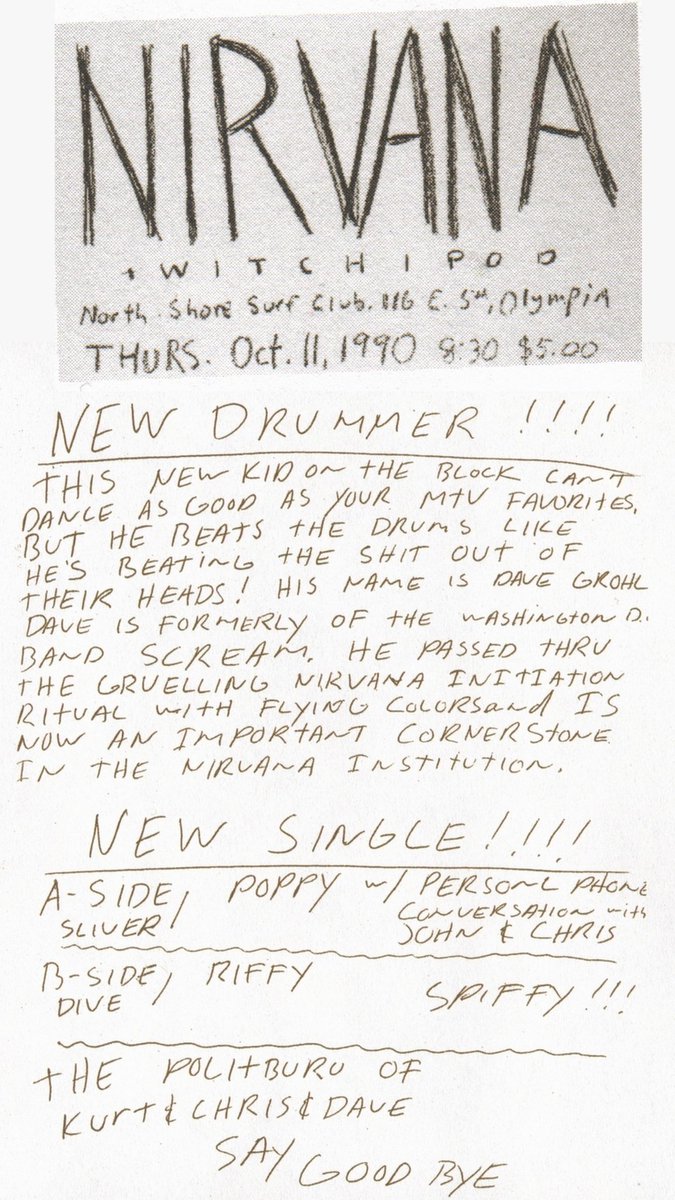 NIRVANA
+ WITCHIPOO
North Shore Surf Club. 116 E. 5th, Olympia
THURS. Oct. 11, 1990 8:30 $5.00
NEW DRUMMER !!!!
THIS NEW KID ON THE BLOCK CAN'T
DANCE AS GOOD AS YOUR MTV FAVORITES.
BUT HE BEATS THE DRUMS LIKE
HE'S BEATING THE SHIT OUT OF
THEIR HEADS! HIS NAME IS DAVE GROHL
DAVE IS FORMERLY OF THE WASHINGTON D.
BAND SCREAM. HE PASSED THRU
THE GRUELLING NIRVANA INITIATION
RITUAL WITH FLYING COLORS and IS
NOW AN IMPORTANT CORNERSTONE
IN THE NIRVANA INSTITUTION.
NEW SINGLE!!!!!
A-SIDE, POPPY w/ PERSONL PHONE
SLIVER / CONVERSATION with
JOHN & CHRIS
B-SIDE, RIFFY
DIVE / SPIFFY!!!
THE POLITBURU OF
KURT & CHRIS & DAVE
SAY GOOD BYE